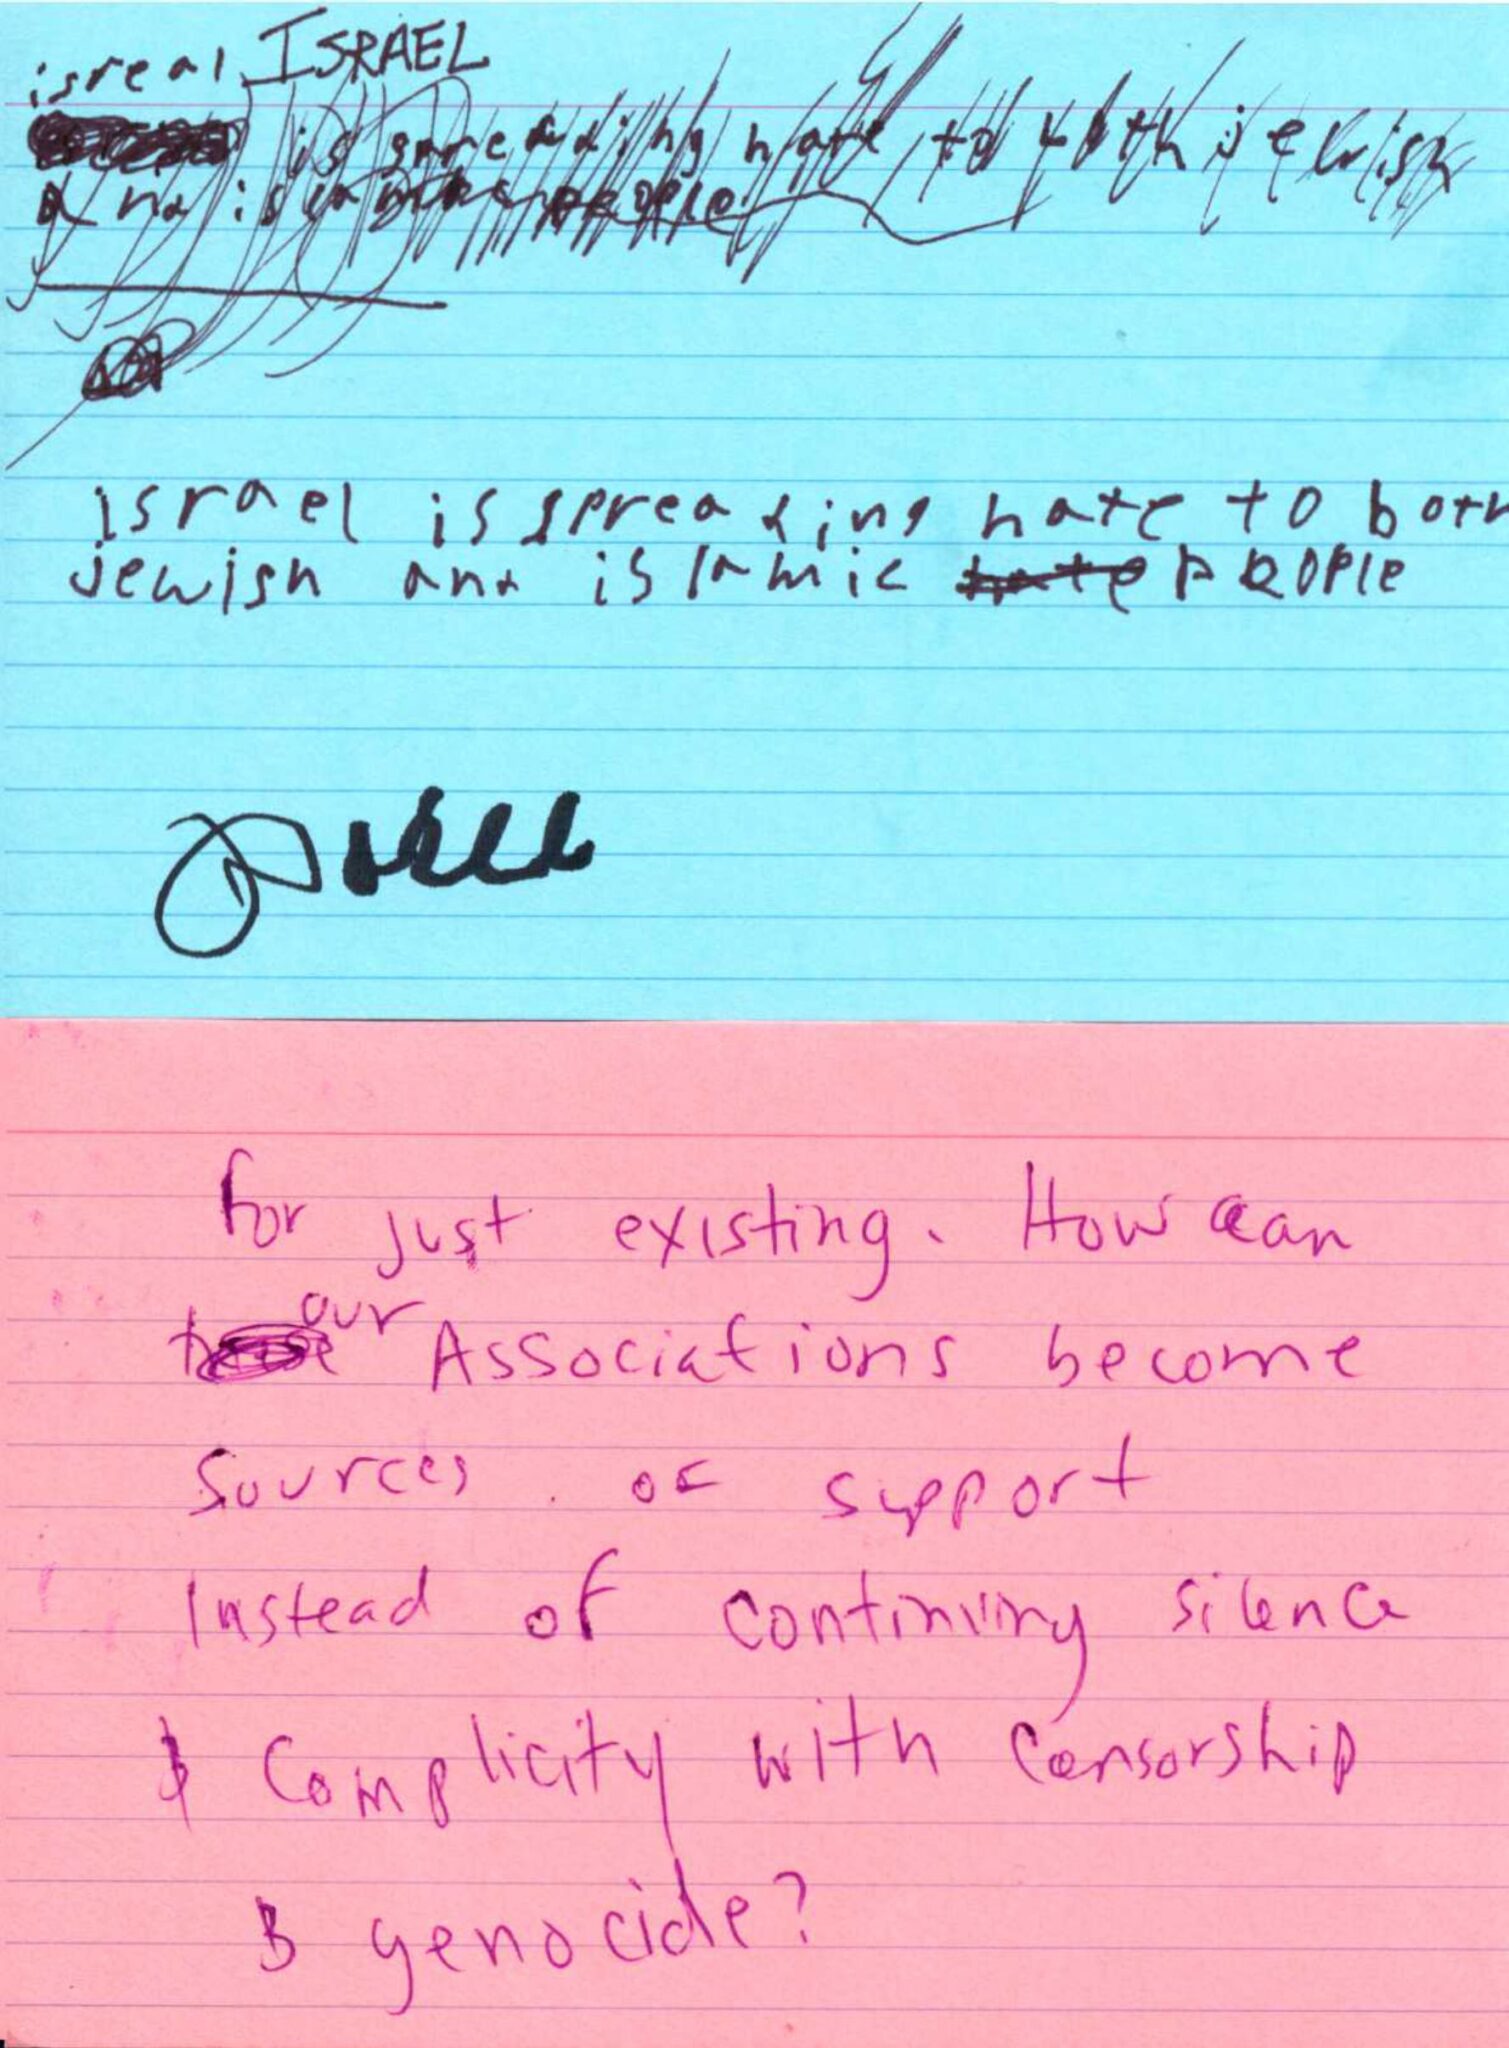 isreal ISRAEL
is spreading hate to both jewish
and islamic people
israel is spreading hate to both
jewish and islamic hate people
for just existing. How can
our
Associations become
sources of support
Instead of continuing silence
& Complicity with censorship
& genocide?